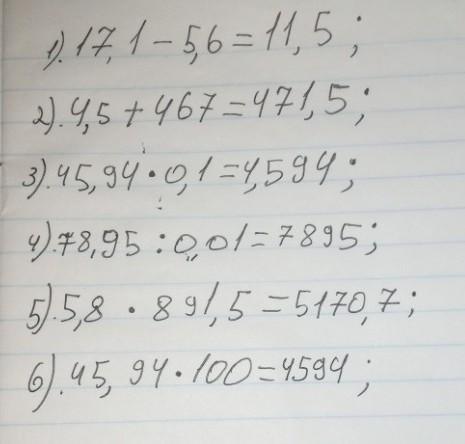 1). 17,1 - 5,6 = 11,5 ;
2). 4,5 + 467 = 471,5 ;
3). 45,94 · 0,1 = 4,594 ;
4). 78,95 : 0,01 = 7895 ;
5). 5,8 · 891,5 = 5170,7 ;
6). 45,94 · 100 = 4594 ;